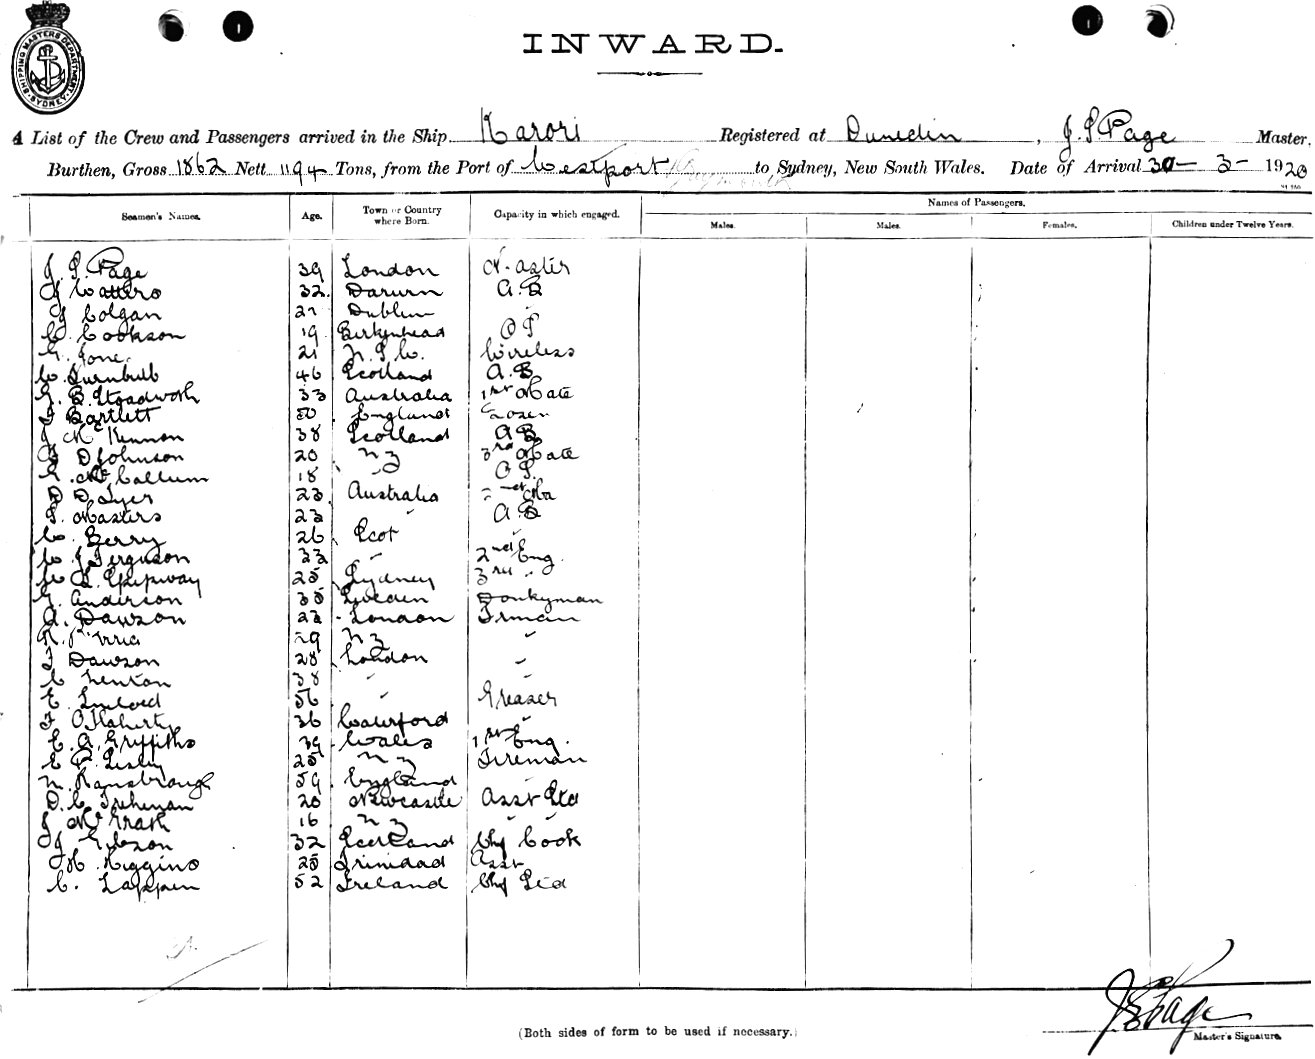 SHIPPING MASTERS DEPARTMENT SYDNEY
INWARD.
A List of the Crew and Passengers arrived in the Ship Karori Registered at Dunedin, J. S Page Master,
Burthen, Gross 1862 Nett 1194 Tons, from the Port of Westport to Sydney, New South Wales. Date of Arrival 30 - 3 - 1920
Names of Passengers.
Seamen's Names. Age. Town or Country where Born. Capacity in which engaged. Males. Males. Females. Children under Twelve Years.
J. S. Page 39 London Master
J 32 Darwin A.B
J Colgan 27 Dublin "
C. Cookson 19 Birkenhead O S
G. Jone 21 N.S.W. Wireless
W. Turnbull 46 Scotland A.B
33 Australia 1st Mate
F Bartlett 50 England
J Mc Kinnon 38 Scotland A B
D Johnson 20 N Z 3rd Mate
Mc Callum 18 " O S.
D D Dyer 23 Australia
S. Masters 23 " A.B
W. Berry 26 Scot "
W. J Ferguson 33 " 2nd Eng.
W 25 Sydney 3rd "
G. Anderson 35 Sweden Donkyman
A. Dawson 23 London Firman
29 N Z "
F Dawson 28 London "
C Newton 38 " "
E. 56 " Greaser
F O'Flaherty 36 Waterford "
E. A. Griffiths 39 Wales 1st Eng.
E 25 N Z Fireman
59 England
D. C. 20 Newcastle Asst Std
J McGrath 16 N Z " "
J Gibson 32 Scotland Chf Cook
H. Higgins 25 Trinidad Asst "
C. Lappin 52 Ireland Chf Std
J S Page
Master's Signature.
(Both sides of form to be used if necessary.)